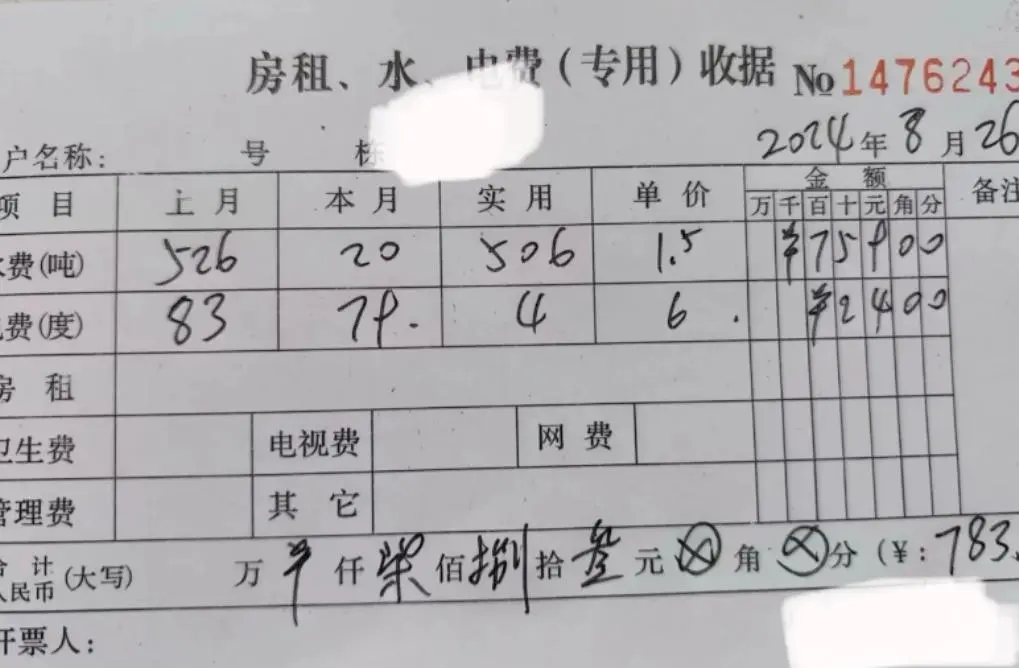 房租、水、电费（专用）收据 No 1476243
户名称： 号 栋 2024年8月26
项目 上月 本月 实用 单价 金额 备注
万 千 百 十 元 角 分
水费(吨) 526 20 506 1.5 ¥75900
电费(度) 83 79. 4 6. ¥2400
房租
卫生费 电视费 网费
管理费 其它
合计人民币(大写) 万 ¥ 仟 柒 佰 捌 拾 叁 元 ⊗ 角 ⊗ 分 (¥: 783.
开票人: